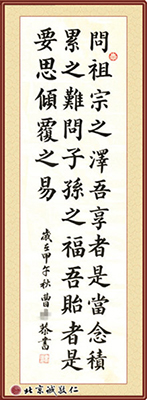 問祖宗之澤吾享者是當念積
累之難問子孫之福吾貽者是
要思傾覆之易
歲在甲午秋曹
書
北京誠敬仁